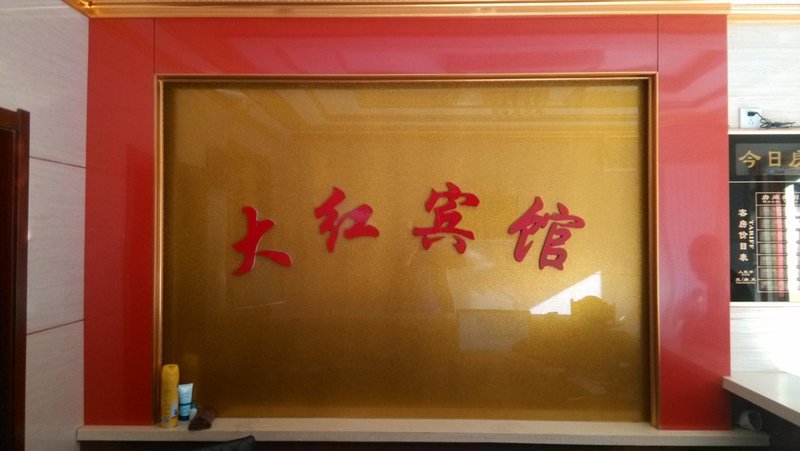 大红宾馆
今日房
客房价目表
TARIFF